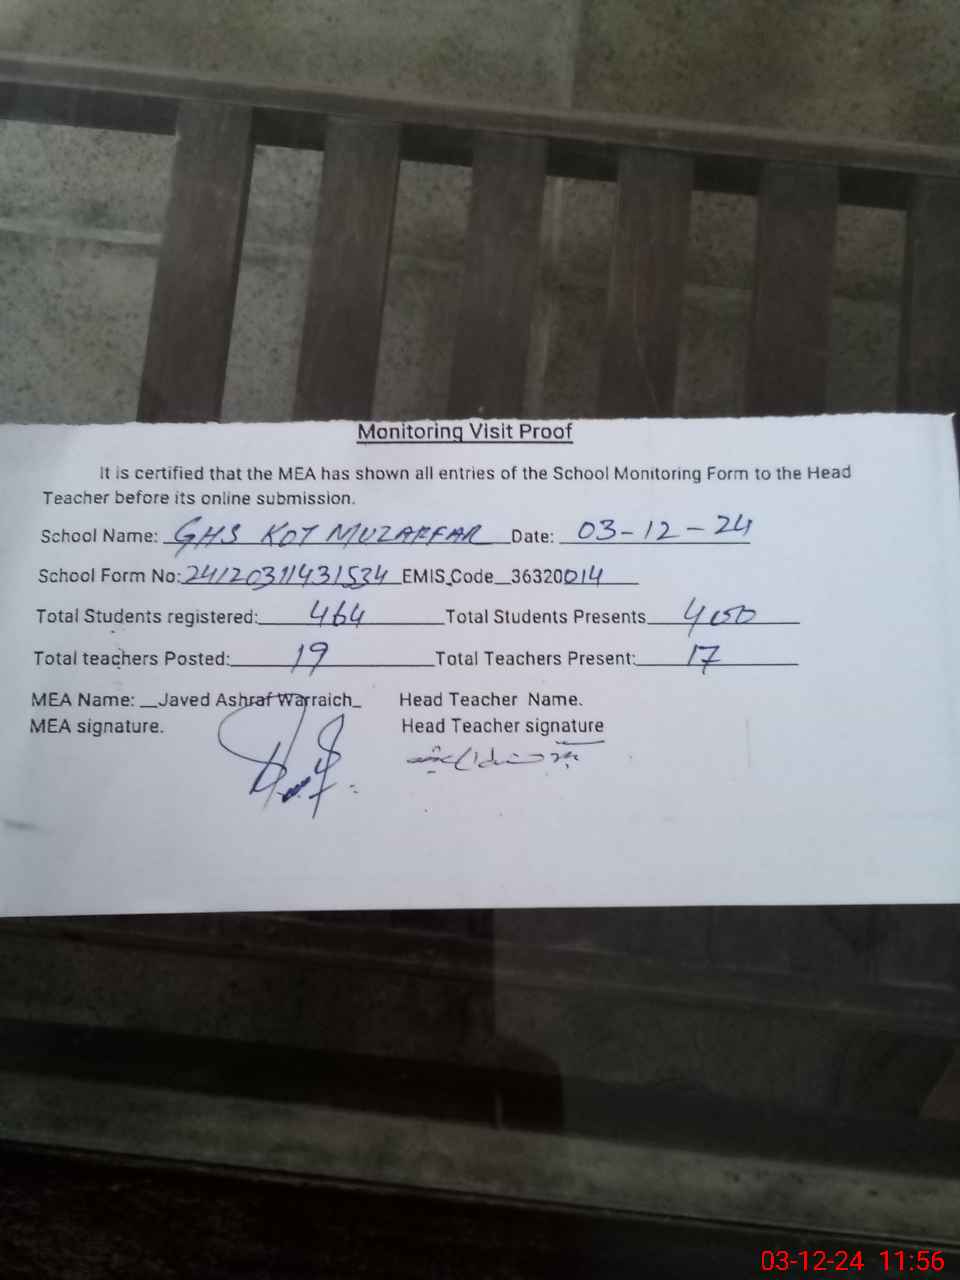 Monitoring Visit Proof
It is certified that the MEA has shown all entries of the School Monitoring Form to the Head
Teacher before its online submission.
School Name: GHS KOT MUZAFFAR Date: 03-12-24
School Form No: 24120311431534 EMIS Code 36320014
Total Students registered: 464 Total Students Presents
Total teachers Posted: 19 Total Teachers Present: 17
MEA Name: Javed Ashraf Warraich Head Teacher Name.
MEA signature. Head Teacher signature
03-12-24 11:56